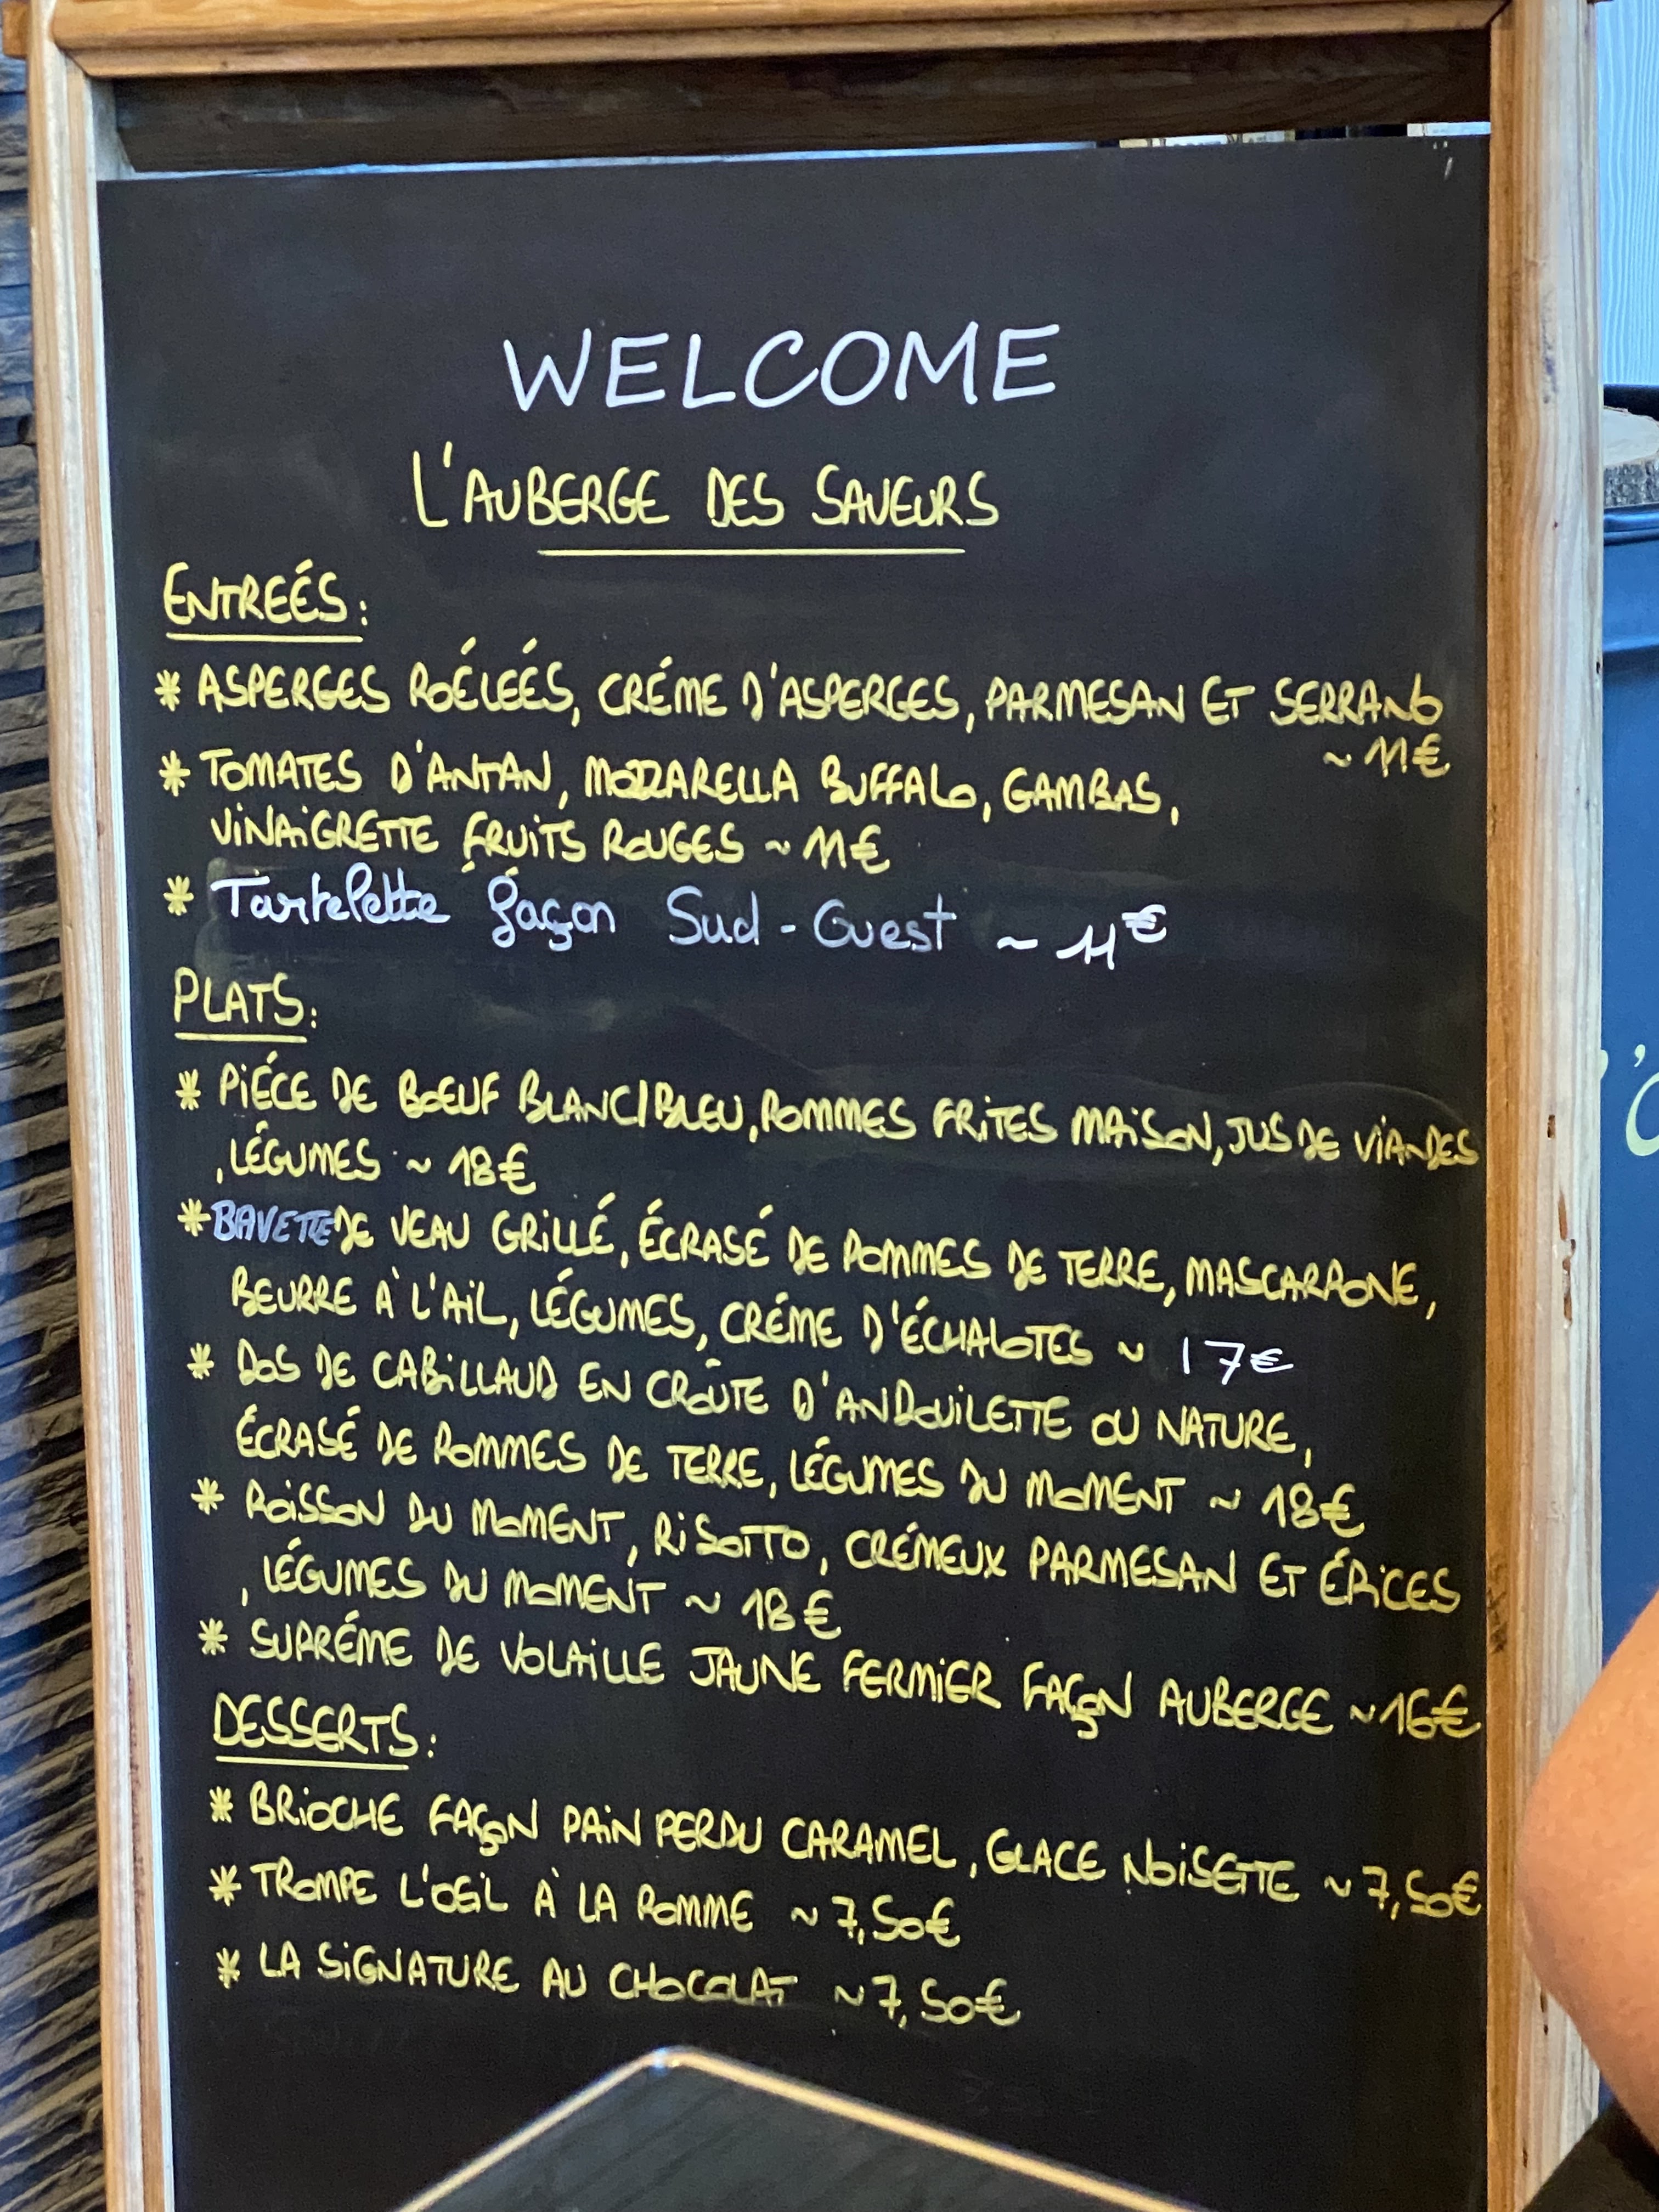 WELCOME
L'AUBERGE DES SAVEURS
ENTREÉS:
* ASPERGES ROÉLEÉS, CRÉME D'ASPERGES, PARMESAN ET SERRANO
~ 11€
* TOMATES D'ANTAN, MOZZARELLA BUFFALO, GAMBAS,
VINAIGRETTE FRUITS ROUGES ~ 11€
* Tartelette façon Sud-Ouest ~ 11€
PLATS:
* PIÉCE DE BOEUF BLANC/BLEU, POMMES FRITES MAISON, JUS DE VIANDES
, LÉGUMES ~ 18€
* BAVETTE DE VEAU GRILLÉ, ÉCRASÉ DE POMMES DE TERRE, MASCARPONE,
BEURRE À L'AIL, LÉGUMES, CRÉME D'ÉCHALOTES ~ 17€
* DOS DE CABILLAUD EN CROÛTE D'ANDOUILETTE OU NATURE,
ÉCRASÉ DE POMMES DE TERRE, LÉGUMES DU MOMENT ~ 18€
* POISSON DU MOMENT, RISOTTO, CRÉMEUX PARMESAN ET ÉPICES
, LÉGUMES DU MOMENT ~ 18€
* SUPRÉME DE VOLAILLE JAUNE FERMIER FAÇON AUBERGE ~ 16€
DESSERTS:
* BRIOCHE FAÇON PAIN PERDU CARAMEL, GLACE NOISETTE ~ 7,50€
* TROMPE L'OEIL À LA POMME ~ 7,50€
* LA SIGNATURE AU CHOCOLAT ~ 7,50€